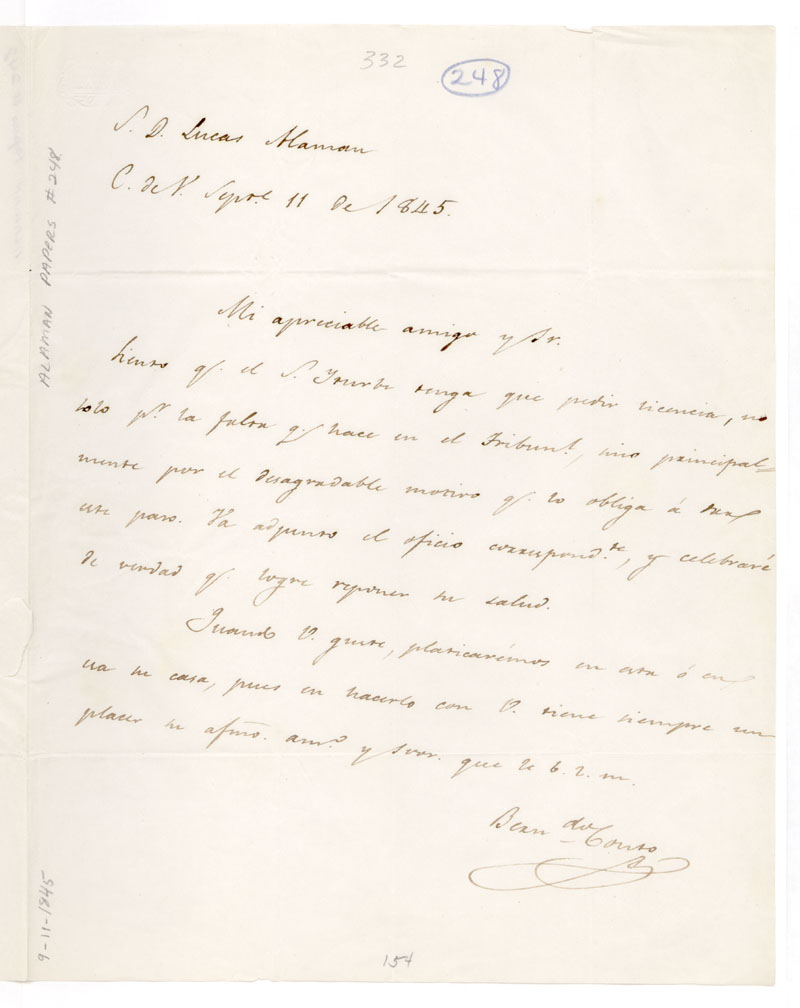 332
248
S. D. Lucas Alaman
C. de V. Sepre. 11 de 1845.
Mi apreciable amigo y Sr.
Siento q. el S. Iturbe tenga que pedir licencia, no
solo pr. la falta q. hace en el Tribunl., sino principal=
mente por el desagradable motivo q. lo obliga á dar
este paso. Va adjunto el oficio correspond.te, y celebraré
de verdad q. logre reponer su salud.
Cuando V. guste, platicarémos en esta ó en
su casa, pues en hacerlo con V. tiene siempre un
placer su afmo. amo. y Svor. que le b. l. m.
Berndo Couto
154
ALAMAN PAPERS # 248
9-11-1845